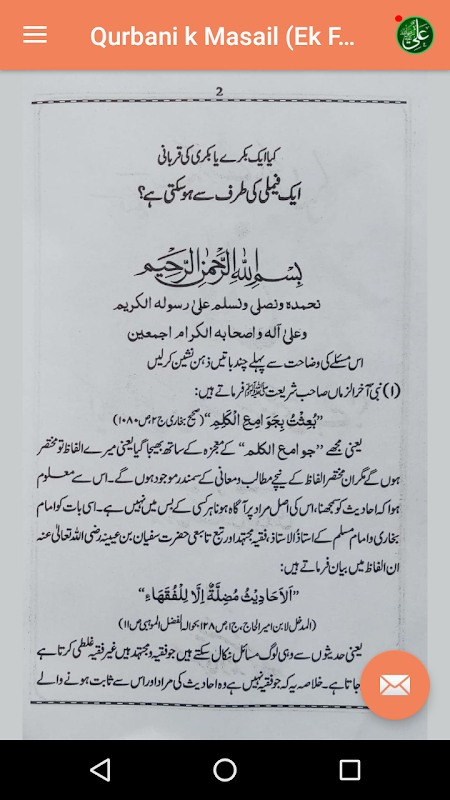 Qurbani k Masail (Ek F...
2
کیا ایک بکرے یا بکری کی قربانی
ایک فیملی کی طرف سے ہوسکتی ہے؟
بسم اللہ الرحمن الرحیم
نحمدہ ونصلی ونسلم علیٰ رسولہ الکریم
وعلیٰ آلہ واصحابہ الکرام اجمعین
اس مسئلے کی وضاحت سے پہلے چند باتیں ذہن نشین کرلیں
(۱) نبی آخر الزماں صاحب شریعت ﷺ فرماتے ہیں:
”بُعِثْتُ بِجَوَامِعِ الْکَلِمِ“ (صحیح بخاری ج۲ ص ۱۰۸۰)
یعنی مجھے ”جوامع الکلم“ کے معجزہ کے ساتھ بھیجا گیا یعنی میرے الفاظ تو مختصر
ہوں گے مگر ان مختصر الفاظ کے نیچے مطالب ومعانی کے سمندر موجود ہوں گے۔ اس سے معلوم
ہوا کہ احادیث کو سمجھنا، اس کی اصل مراد پر آگاہ ہونا ہر کسی کے بس میں نہیں ہے۔ اسی بات کو امام
بخاری و امام مسلم کے استاذ الاستاذ، فقیہ مجتہد اور تبع تابعی حضرت سفیان بن عیینہ رضی اللہ تعالیٰ عنہ
ان الفاظ میں بیان فرماتے ہیں:
”اَلاَحَادِیْثُ مُضِلَّۃٌ اِلَّا لِلْفُقَھَاءِ“
(المدخل لابن امیر الحاج، ج۱، ص ۱۲۸ بحوالہ الفضل الموہبی ص ۱۱)
یعنی حدیثوں سے وہی لوگ مسائل نکال سکتے ہیں جو فقیہ ومجتہد ہیں غیر فقیہ غلطی کرتا ہے
جاتا ہے۔ خلاصہ یہ کہ جو فقیہ نہیں ہے وہ احادیث کی مراد اور اس سے ثابت ہونے والے